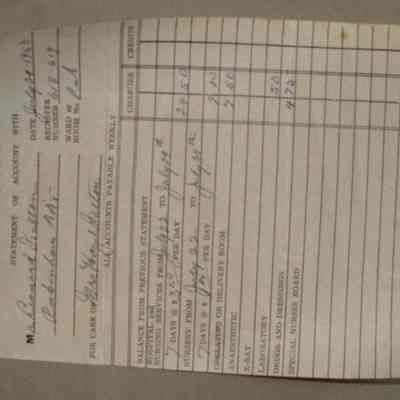 STATEMENT OF ACCOUNT WITH
M Bernard
DATE July 29 1953
REGISTER NUMBER 618 619
WARD OR ROOM No.
FOR CARE OF Mrs
ALL ACCOUNTS PAYABLE WEEKLY
CHARGES CREDITS
BALANCE FROM PREVIOUS STATEMENT
HOSPITAL and
NURSING SERVICES FROM July 22 TO July 29th
7 DAYS @ $ 3.50 PER DAY 24 50
NURSERY FROM July 22 TO July 29th
7 DAYS @ $ 1.00 PER DAY 7 00
OPERATING OR DELIVERY ROOM 7 50
ANAESTHETIC
X-RAY
LABORATORY
DRUGS AND DRESSINGS 50
SPECIAL NURSES BOARD 4 75